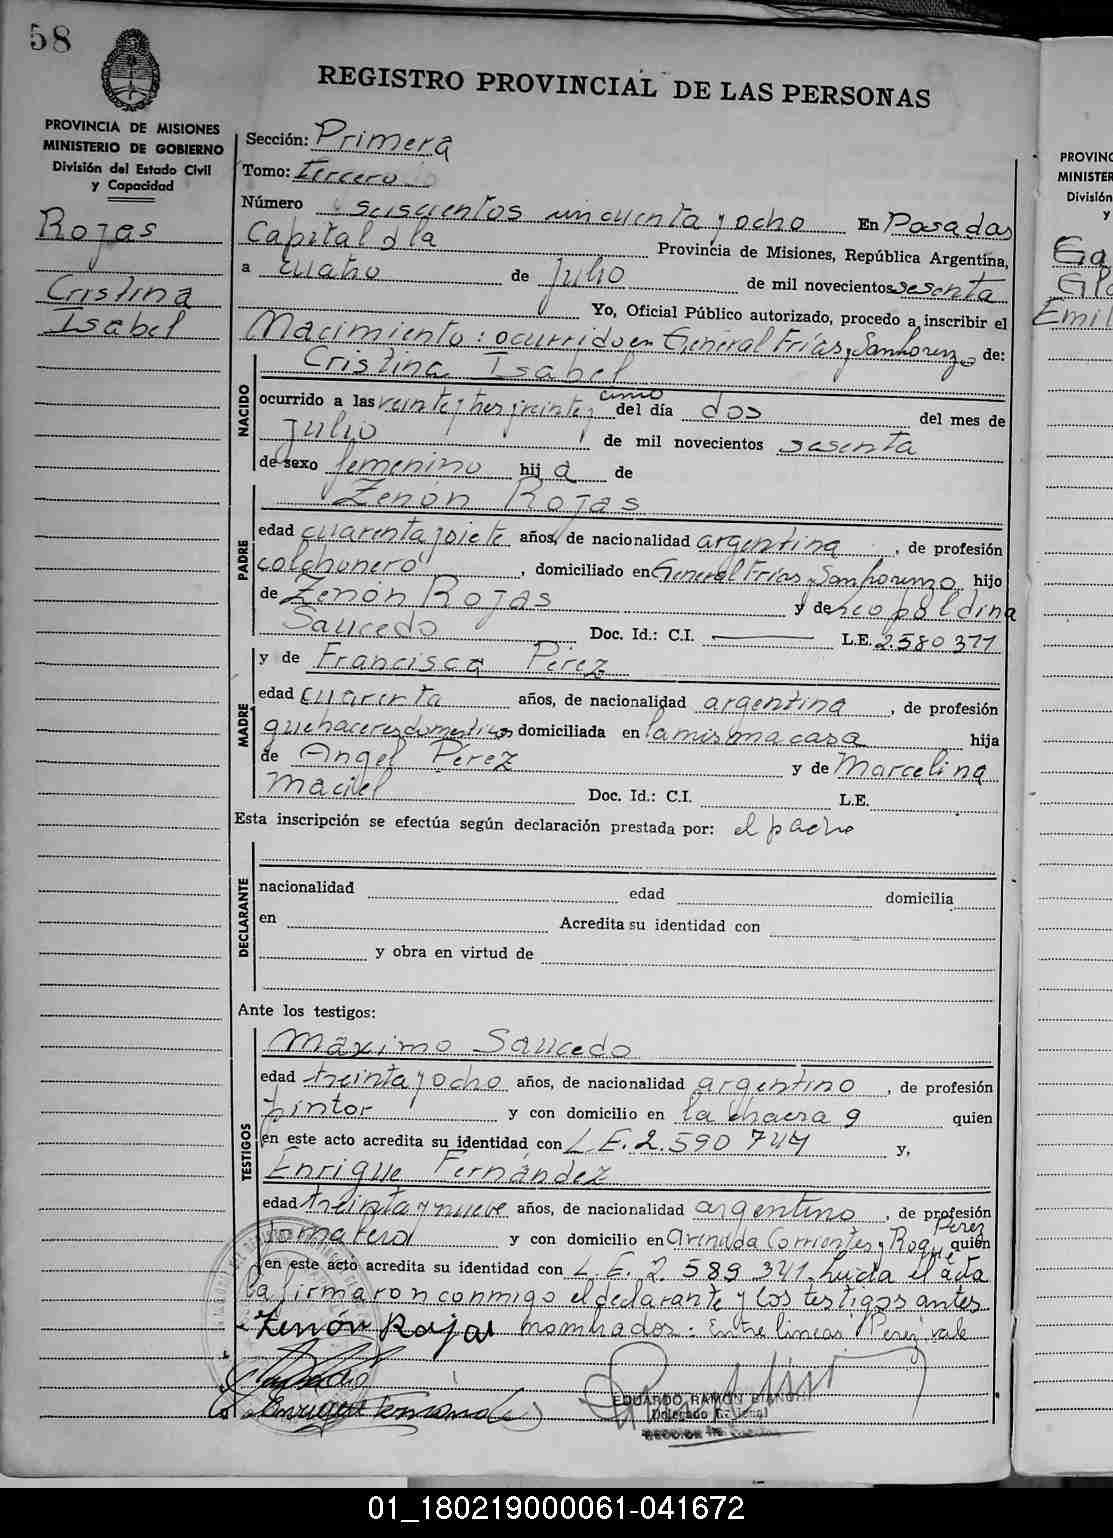 58
REGISTRO PROVINCIAL DE LAS PERSONAS
PROVINCIA DE MISIONES
MINISTERIO DE GOBIERNO
División del Estado Civil
y Capacidad
Rojas
Cristina
Isabel
Sección: Primera
Tomo: Tercero
Número seiscientos cincuenta y ocho En Posadas
Capital d la Provincia de Misiones, República Argentina,
a cuatro de Julio de mil novecientos sesenta
Yo, Oficial Público autorizado, procedo a inscribir el
Nacimiento: ocurrido en General Frías y San Lorenzo de:
NACIDO
Cristina Isabel
ocurrido a las veinte y tres y veinte y cinco del día dos del mes de
Julio de mil novecientos sesenta
de sexo femenino hij a de
PADRE
Zenón Rojas
edad cuarenta y siete años, de nacionalidad argentina, de profesión
colchonero, domiciliado en General Frías y San Lorenzo hijo
de Zenón Rojas y de Leopoldina
Saucedo Doc. Id.: C.I. L.E. 2.580.377
y de Francisca Pérez
MADRE
edad cuarenta años, de nacionalidad argentina, de profesión
quehaceres domésticos domiciliada en la misma casa hija
de Angel Pérez y de Marcelina
Maciel Doc. Id.: C.I. L.E.
Esta inscripción se efectúa según declaración prestada por: el padre
DECLARANTE
nacionalidad edad domicilia
en Acredita su identidad con
y obra en virtud de
Ante los testigos:
TESTIGOS
Máximo Saucedo
edad treinta y ocho años, de nacionalidad argentino, de profesión
pintor y con domicilio en la chacra 9 quien
en este acto acredita su identidad con L.E. 2.590 744 y,
Enrique Fernández
edad treinta y nueve años, de nacionalidad argentino, de profesión
jornalero y con domicilio en avenida Corrientes y Roque Pérez quien
en este acto acredita su identidad con L.E. 2.589 341. Leída el acta
la firmaron conmigo el declarante y los testigos antes
Zenón Rojas nombrados. Entre líneas "Pérez" vale
Enrique Fernández
EDUARDO RAMÓN
Delegado
PROVINC
MINISTER
División
y
Emil
01_180219000061-041672